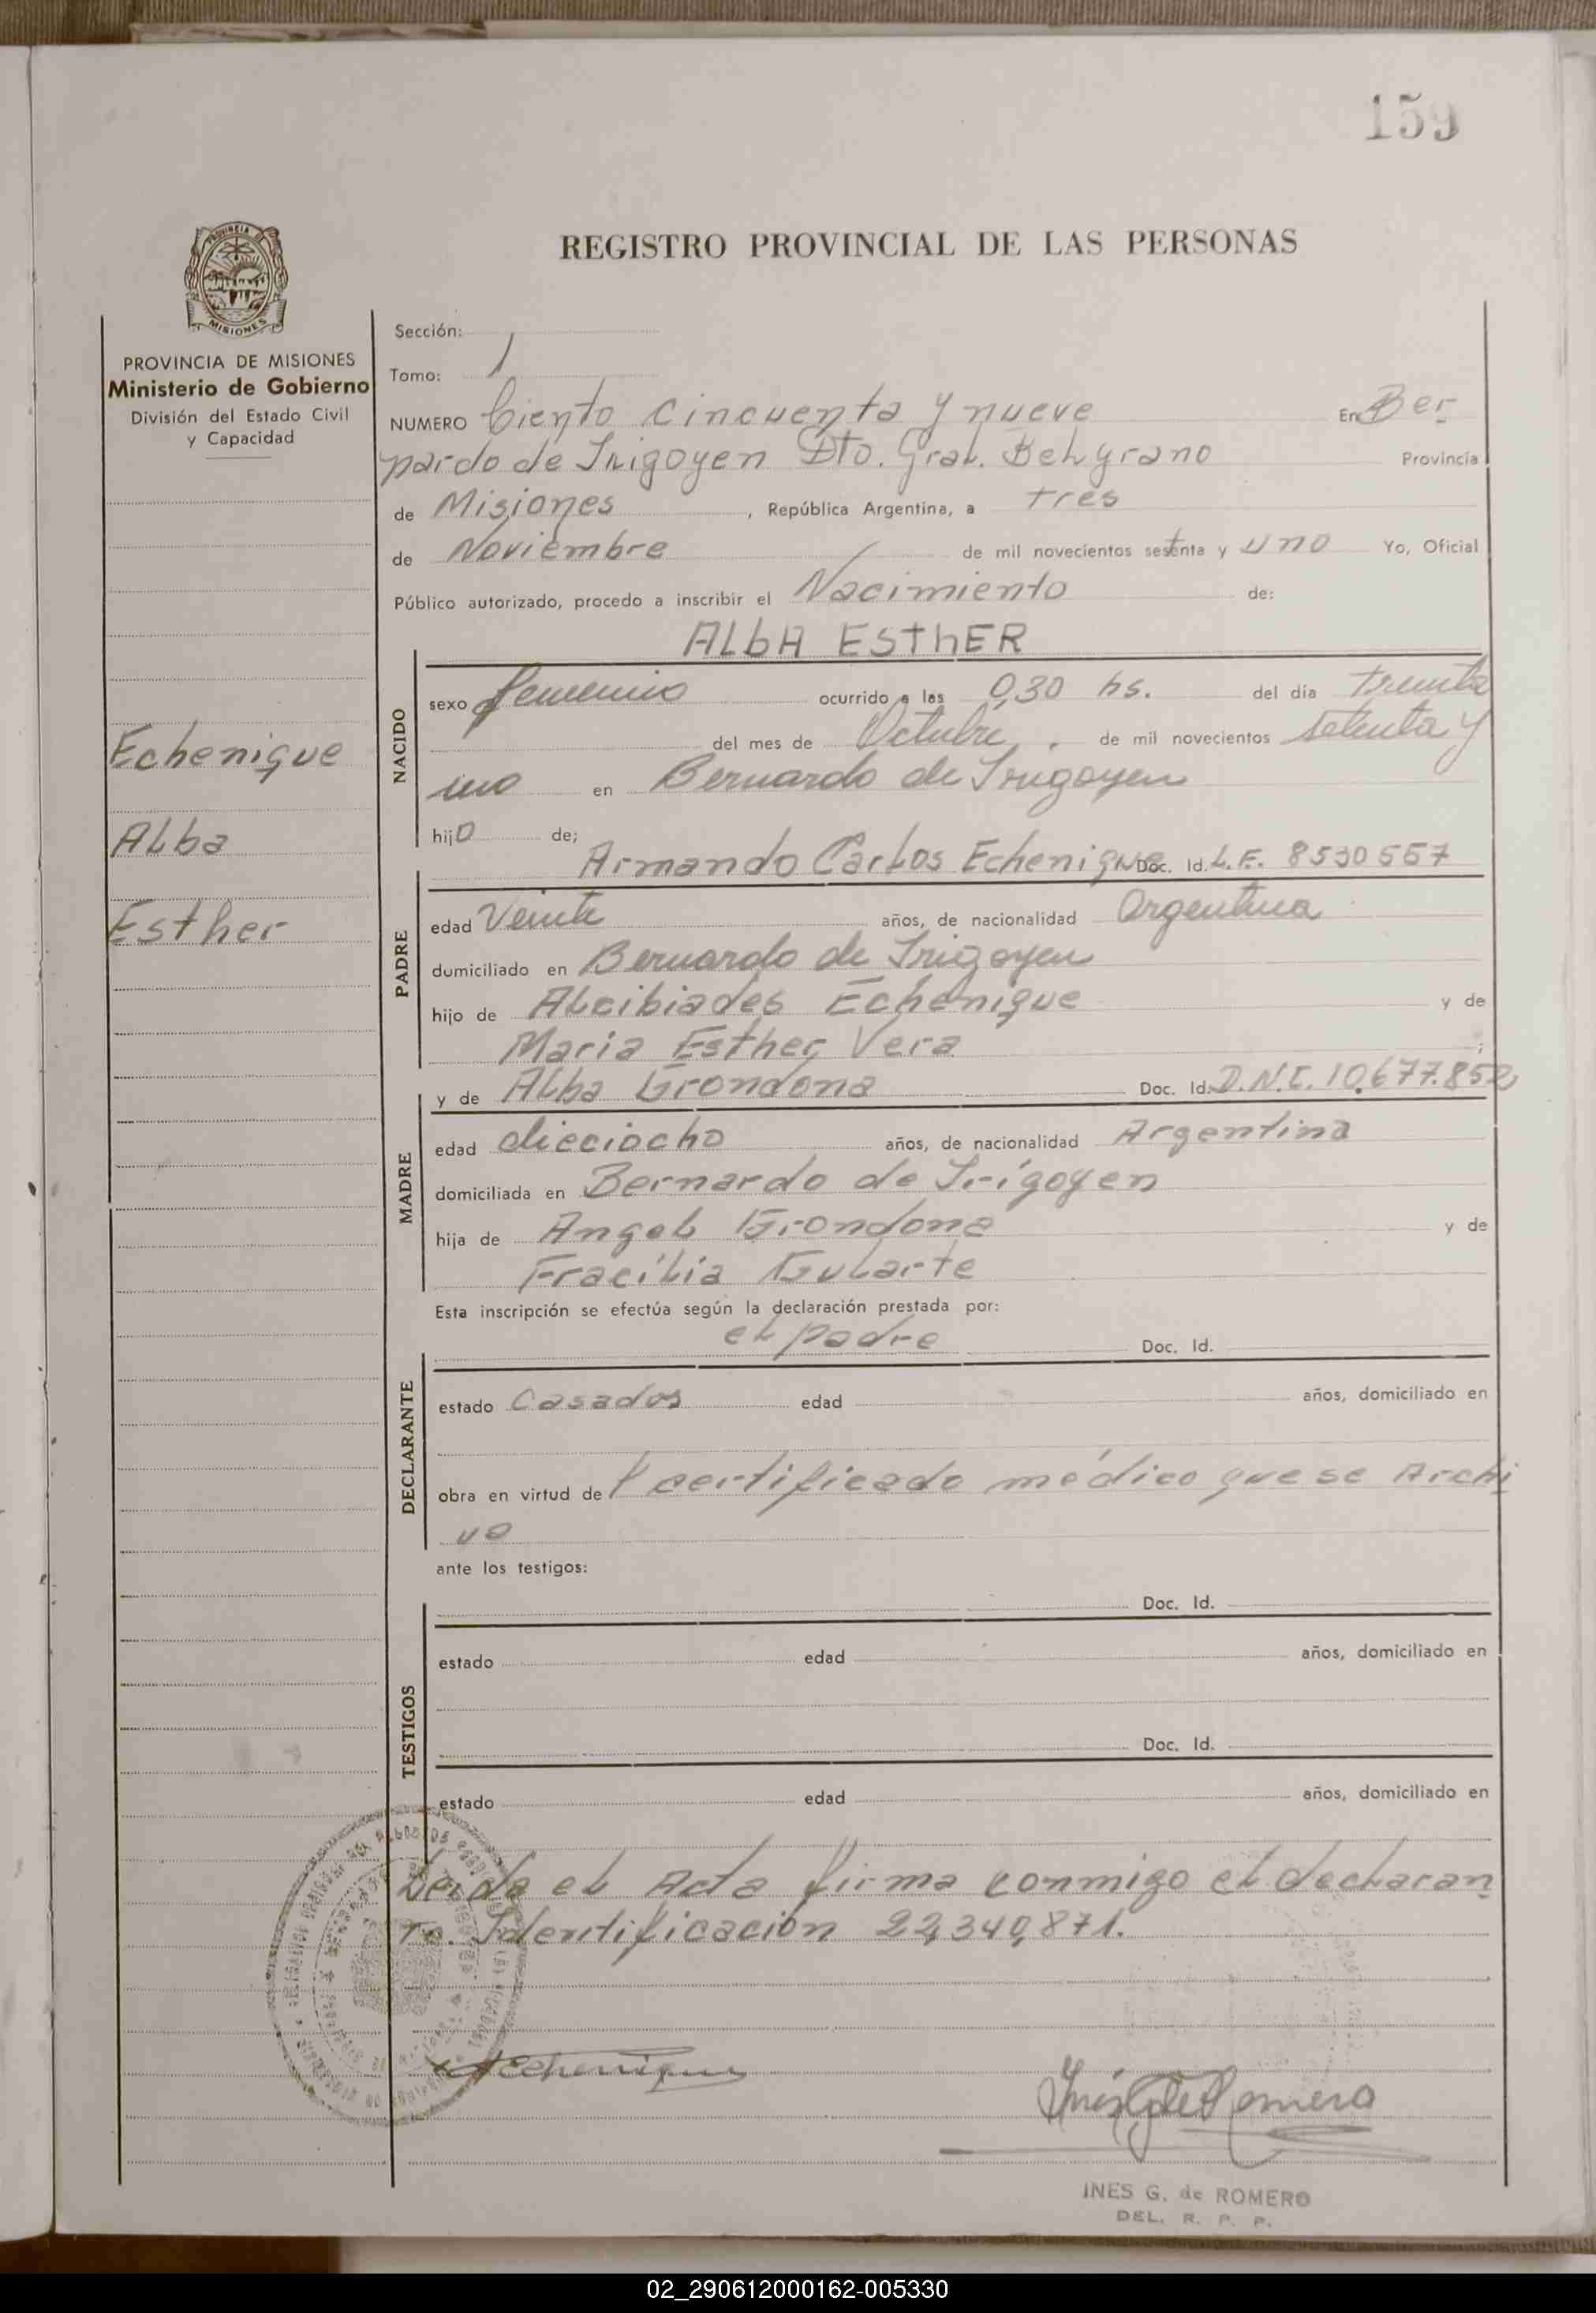 159
REGISTRO PROVINCIAL DE LAS PERSONAS
PROVINCIA DE
MISIONES
PROVINCIA DE MISIONES
Ministerio de Gobierno
División del Estado Civil
y Capacidad
Echenique
Alba
Esther
Sección:
Tomo: 1
NUMERO Ciento cincuenta y nueve En Ber
nardo de Irigoyen Dto. Gral. Belgrano Provincia
de Misiones, República Argentina, a tres
de Noviembre de mil novecientos setenta y uno Yo, Oficial
Público autorizado, procedo a inscribir el Nacimiento de:
ALbA ESthER
NACIDO
sexo femenino ocurrido a las 0,30 hs. del día treinta
del mes de Octubre, de mil novecientos setenta y
uno en Bernardo de Irigoyen
hijo de;
Armando Carlos Echenique Doc. Id. L.E. 8530557
PADRE
edad Veinte años, de nacionalidad Argentina
dumiciliado en Bernardo de Irigoyen
hijo de Alcibiades Echenique y de
Maria Esther Vera;
y de Alba Grondona Doc. Id. D.N.I. 10.677.852
MADRE
edad dieciocho años, de nacionalidad Argentina
domiciliada en Bernardo de Irigoyen
hija de Angel Grondona y de
Fracilia Gularte
Esta inscripción se efectúa según la declaración prestada por:
el padre Doc. Id.
DECLARANTE
estado Casados edad años, domiciliado en
obra en virtud de certificado médico que se Archi
va
ante los testigos:
Doc. Id.
TESTIGOS
estado edad años, domiciliado en
Doc. Id.
estado edad años, domiciliado en
Leida el Acta firma conmigo el declaran
te. Identificación 22,340,871.
Echenique
Inés G de Romero
INES G. de ROMERO
DEL. R. P. P.
02_290612000162-005330